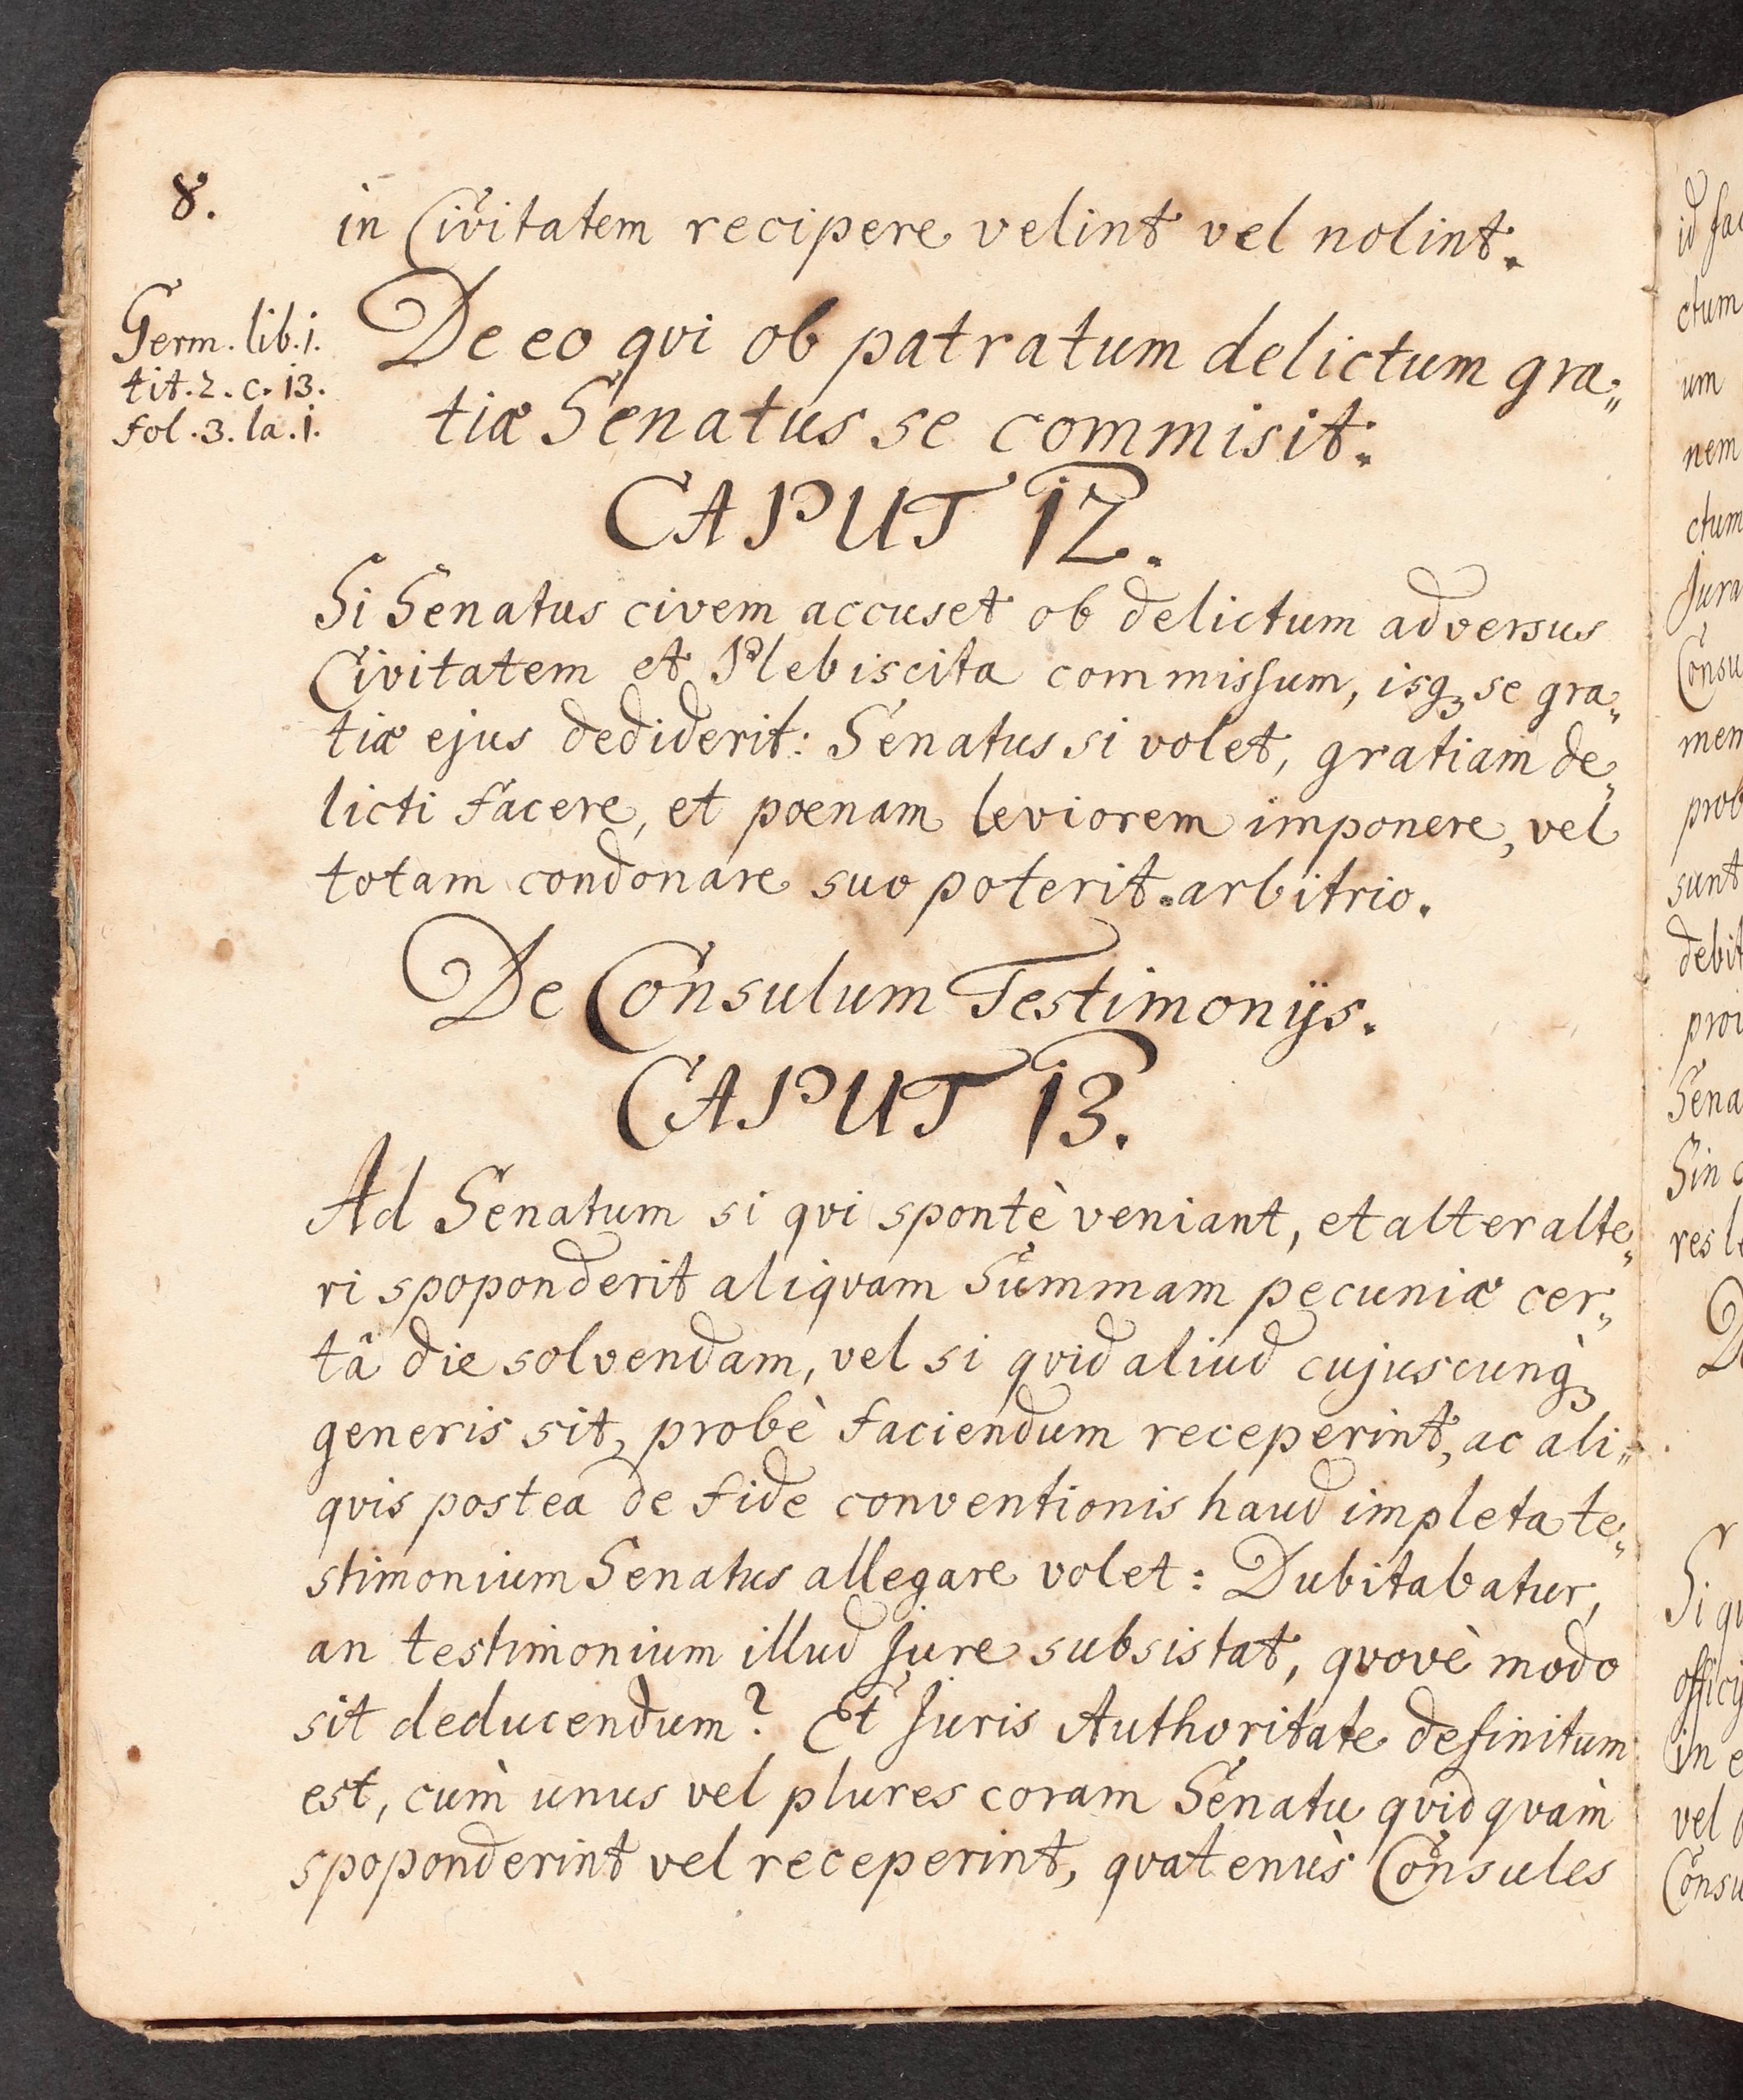 8.
in Civitatem recipere velint vel nolint.
Germ. lib. 1.
tit. 2. c. 13.
fol. 3. la. 1.
De eo qvi ob patratum delictum gra„
tiæ Senatus se commisit.
CAPUT 12.
Si Senatus civem accuset ob delictum adversus
Civitatem et Plebiscita commissum, isq₃ se gra„
tiæ ejus dediderit: Senatus si volet, gratiam de„
licti facere, et poenam leviorem imponere, vel
totam condonare suo poterit. arbitrio.
De Consulum Testimonijs.
CAPUT 13.
Ad Senatum si qvi spontè veniant, et alter alte„
ri spoponderit aliqvam Summam pecuniæ cer„
tâ die solvendam, vel si qvid aliud cujuscunq₃
generis sit, probè faciendum receperint, ac ali„
qvis postea de fide conventionis haud impleta te„
stimonium Senatus allegare volet: Dubitabatur,
an testimonium illud Jure subsistat, qvovè modo
sit deducendum? Et Juris Authoritate definitum
est, cum̀ unus vel plures coram Senatu qvidqvam̀
spoponderint vel receperint, qvatenùs Consules
id fac
ctum
um
nem
ctum
Jura
Consu
mem
prob
sunt
debit
proi
Sena
Sin
res le
De
Si qv
officij
in e
vel
Consu